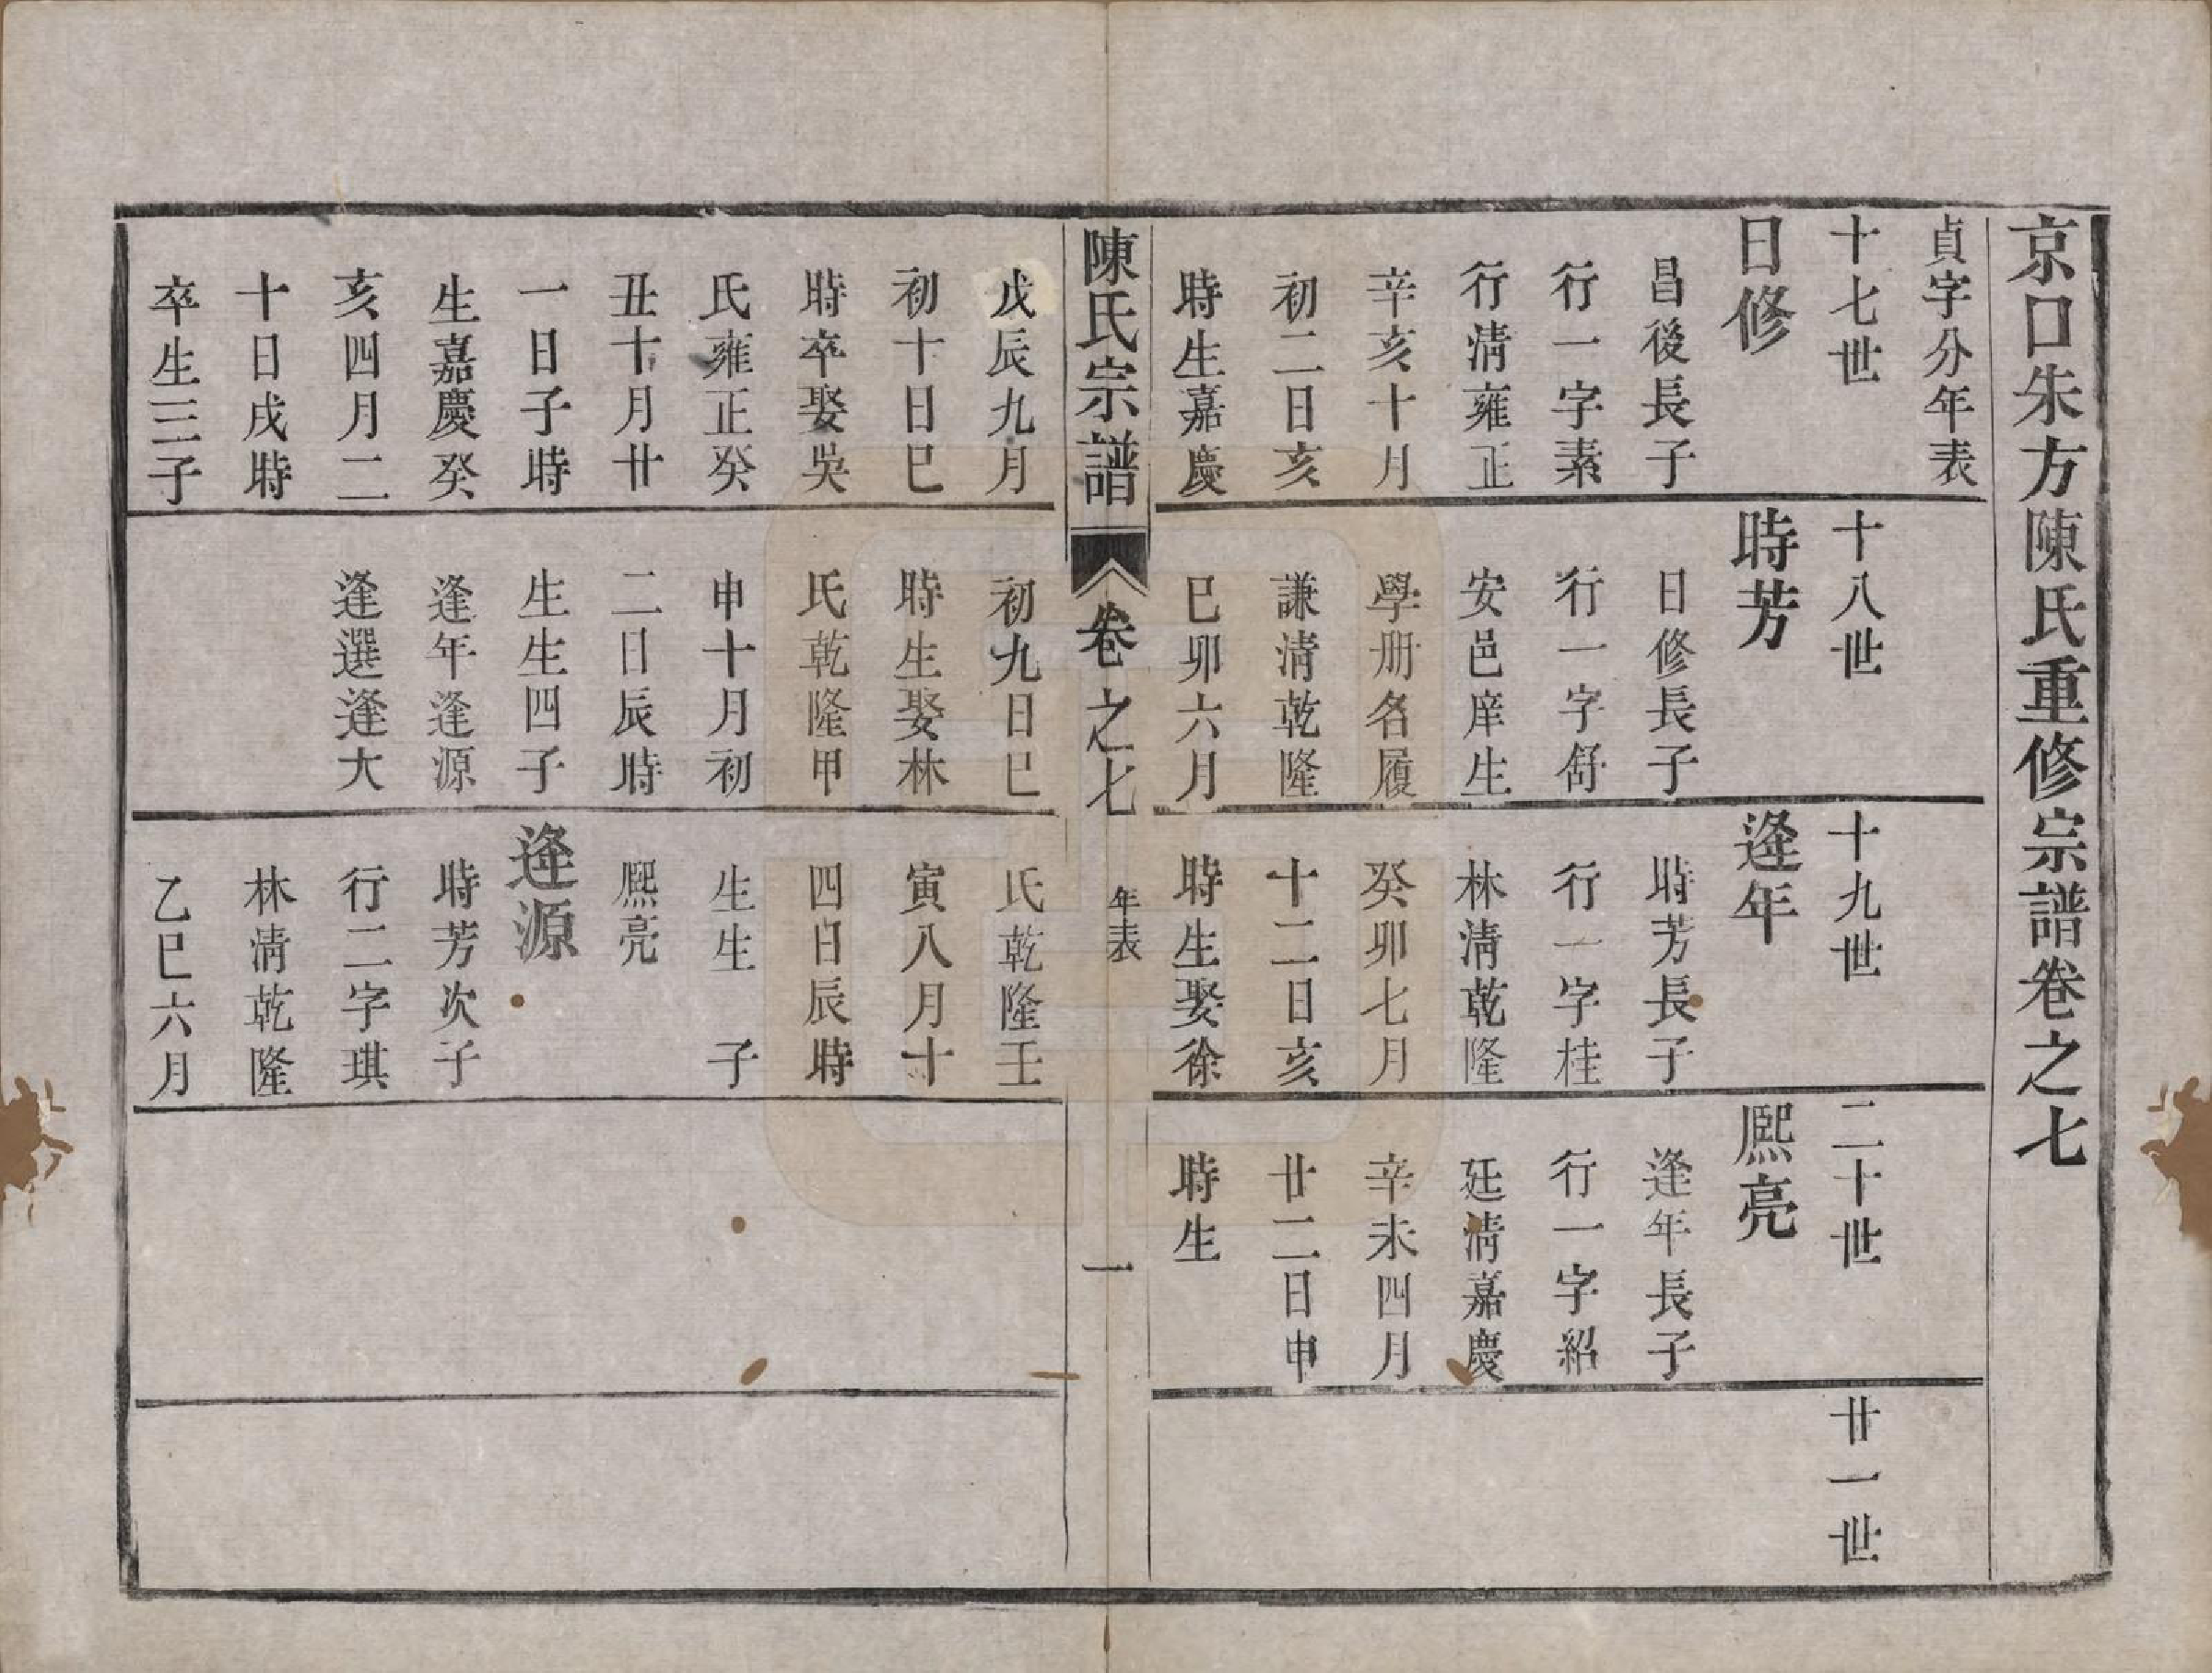 京口朱方陳氏重修宗譜卷之七
貞字分年表
十七世
日修
昌後長子
行一字素
行清雍正
辛亥十月
初二日亥
時生嘉慶
戊辰九月
初十日巳
時卒娶吳
氏雍正癸
丑十月廿
一日子時
生嘉慶癸
亥四月二
十日戌時
卒生三子
十八世
時芳
日修長子
行一字舒
安邑庠生
學册名履
謙清乾隆
己卯六月
初九日巳
時生娶林
氏乾隆甲
申十月初
二日辰時
生生四子
逢年逢源
逢選逢大
十九世
逢年
時芳長子
行一字桂
林清乾隆
癸卯七月
十二日亥
時生娶徐
氏乾隆壬
寅八月十
四日辰時
生生 子
熙亮
逢源
時芳次子
行二字琪
林清乾隆
乙巳六月
二十世
熙亮
逢年長子
行一字紹
廷清嘉慶
辛未四月
廿二日申
時生
廿一世
陳氏宗譜
卷之七
年表
一